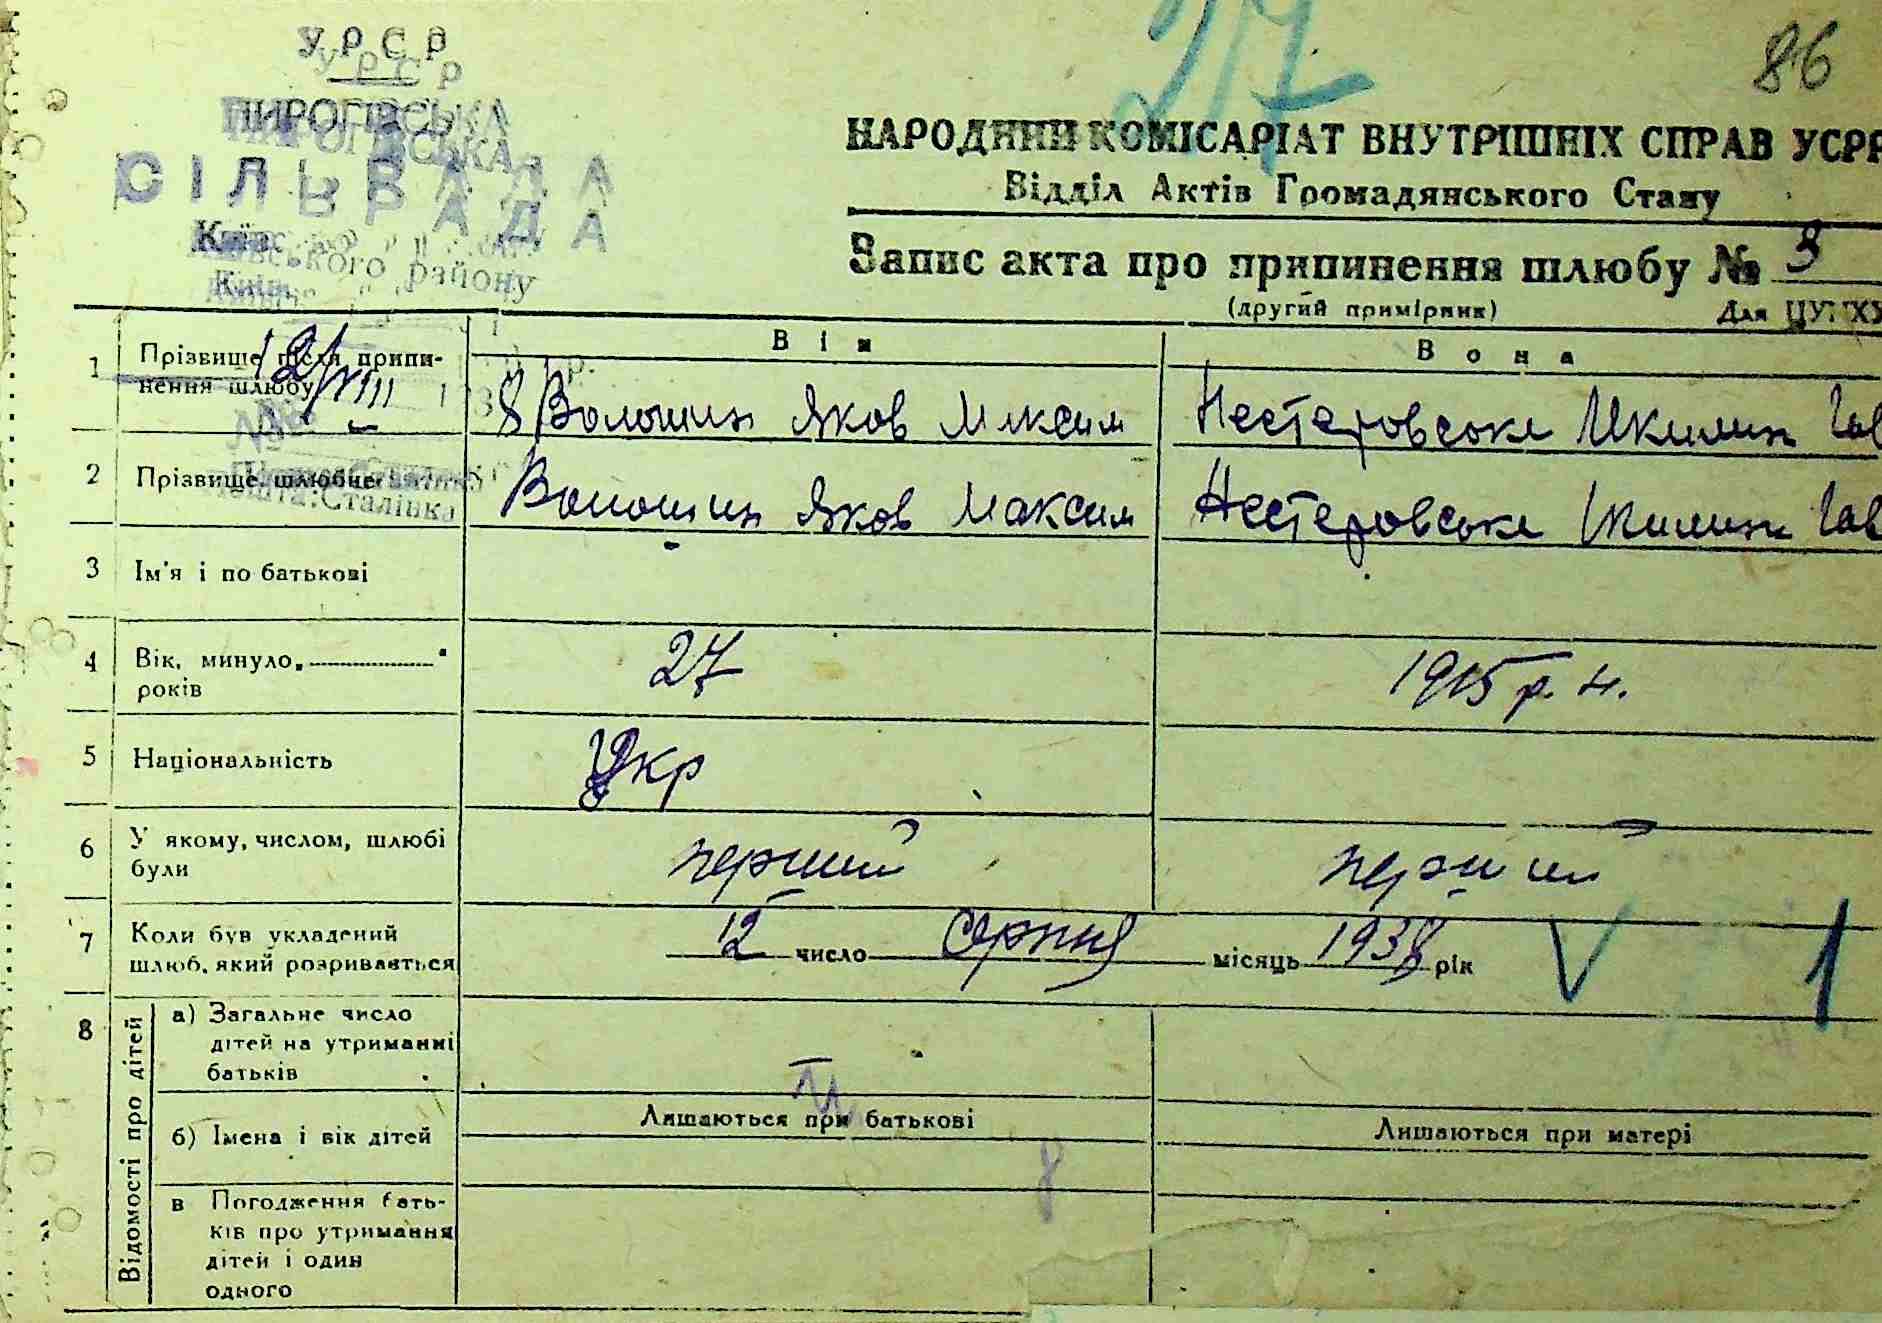 27
86
УРСР
ПИРОГІВСЬКА
СІЛЬРАДА
Київського району
НАРОДНИЙ КОМІСАРІАТ ВНУТРІШНІХ СПРАВ УСРР
Відділ Актів Громадянського Стану
Запис акта про припинення шлюбу № 3
(другий примірник)
Для ЦУНХУ
12/VIII
Пошта: Сталінка
Він
Вона
1 Прізвище після припинення шлюбу
Волошин Яков Максим
Нестеровська Гав
2 Прізвище шлюбне
Волошин Яков Максим
Нестеровська Гав
3 Ім'я і по батькові
4 Вік, минуло „ " років
27
1915 р. н.
5 Національність
Укр
6 У якому, числом, шлюбі були
перший
перший
7 Коли був укладений шлюб, який розривається
12 число серпня місяць 1938 рік
V 1
8 Відомості про дітей
а) Загальне число дітей на утриманні батьків
б) Імена і вік дітей
Лишаються при батькові
Лишаються при матері
в Погодження батьків про утримання дітей і один одного